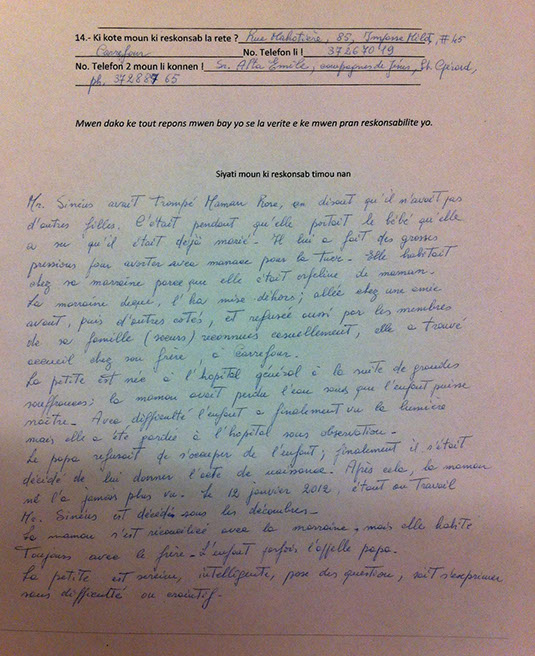 14.- Ki kote moun ki reskonsab la rete ? Rue Mahotière, 85, Impasse Hilda, # 45
Carrefour No. Telefon li ! 37267019
No. Telefon 2 moun li konnen ! Sr. Alta Emile, compagnes de Jésus, St Gérard,
ph. 3728 87 65
Mwen dako ke tout repons mwen bay yo se la verite e ke mwen pran reskonsabilite yo.
Siyati moun ki reskonsab timou nan
Mr. Sinéus avait trompé Maman Rose, en disant qu'il n'avait pas
d'autres filles. C'était pendant qu'elle portait le bébé qu'elle
a su qu'il était déjà marié - Il lui a fait des grosses
pressions pour avorter avec menace pour la tuer. Elle habitait
chez sa marraine parce que elle était orfeline de maman.
La marraine deçue, l'ha mise dehors; allée chez une amie
avant, puis d'autres cotés, et refusée aussi par les membres
de sa famille (sœurs) reconnues casuellement, elle a trouvé
accueil chez son frère, à Carrefour.
La petite est née à l'hopital général à la suite de grandes
souffrances; la maman avait perdu l'eau sans que l'enfant puisse
naître - Avec difficulté l'enfant a finalement vu la lumière
mais elle a été gardée à l'hopital sous observation -
Le papa refusait de s'occuper de l'enfant; finalement il s'était
décidé de lui donner l'acte de naissance. Après cela, la maman
ne l'a jamais plus vu. Le 12 janvier 2012, étant au Travail
Mr. Sinéus est décédé sous les décombres -
La maman s'est réconciliée avec la marraine, mais elle habite
Toujours avec le frère - L'enfant parfois l'appelle papa.
La petite est sereine, intelligente, pose des question, sait s'exprimer
sans difficulté ou craintif.